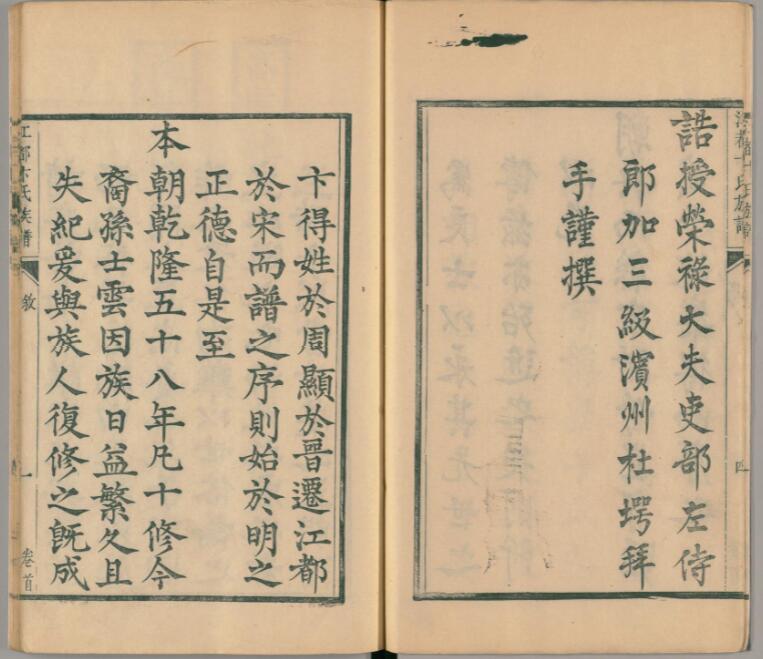 誥授榮祿大夫吏部左侍
郎加三級濱州杜堮拜
手謹撰
四
卞得姓於周顯於晉遷江都
於宋而譜之序則始於明之
正德自是至
本朝乾隆五十八年凡十修今
裔孫士雲因族日益繁久且
失紀爰與族人復修之既成
江都卞氏族譜
敘
一
卷首